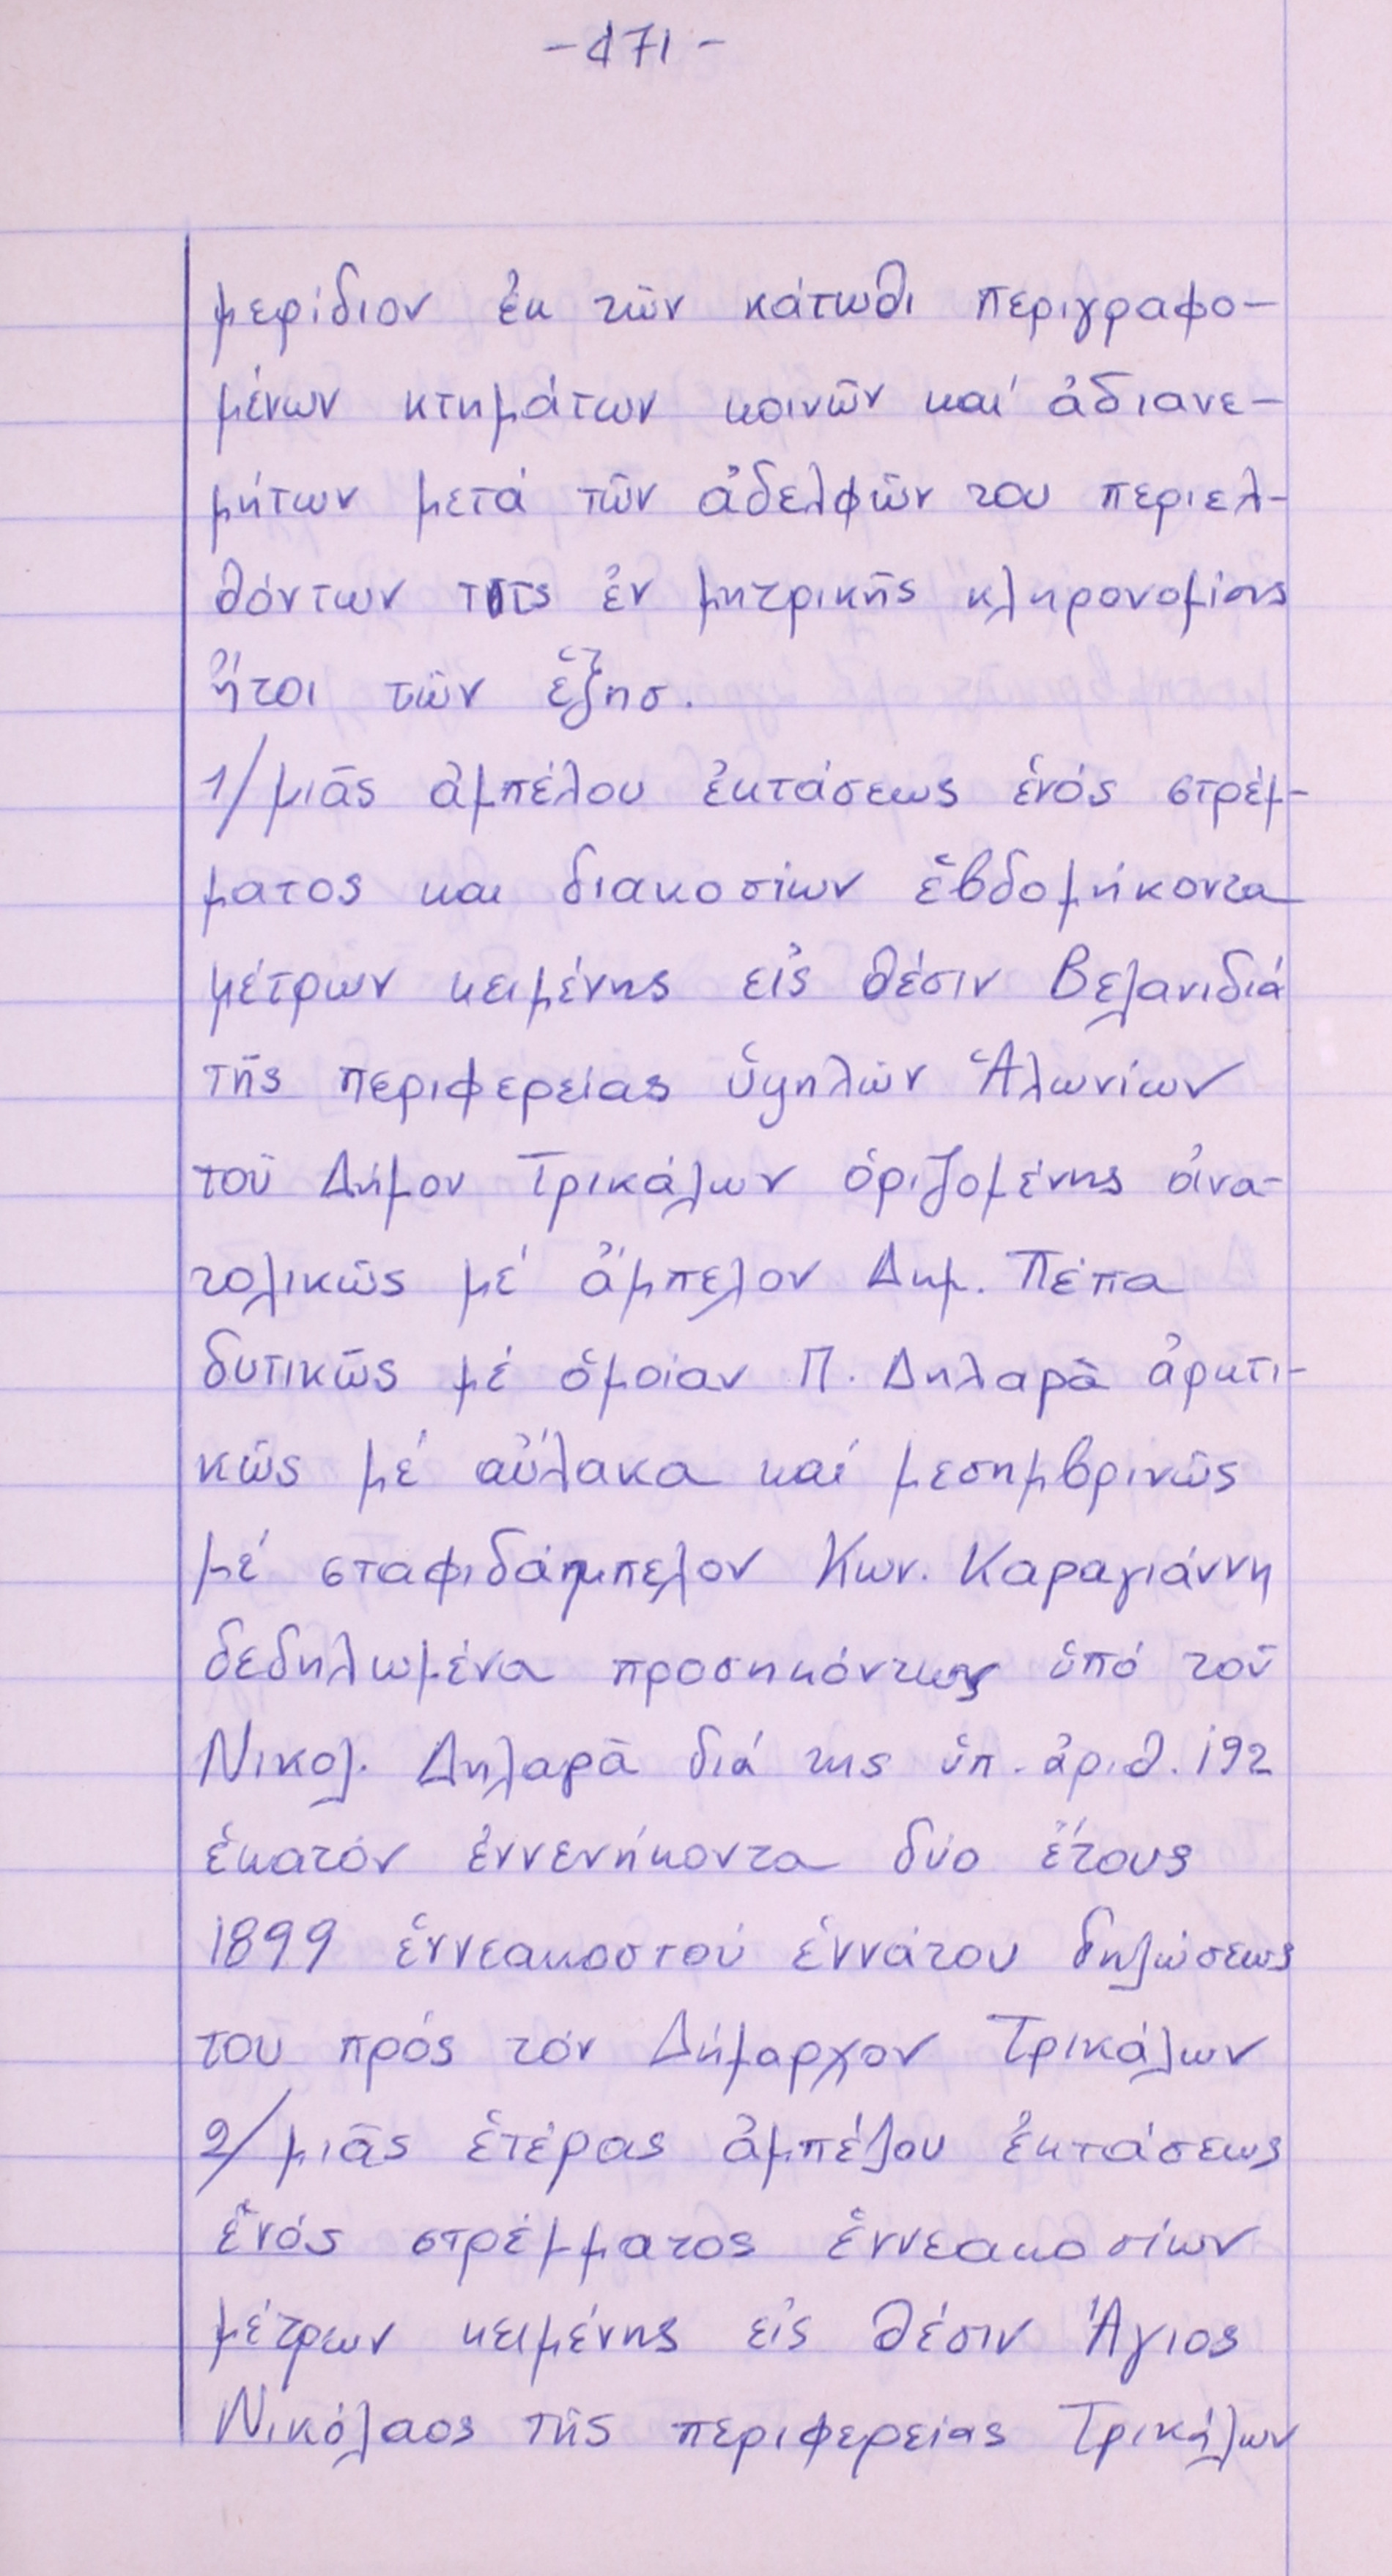 -471-
μερίδιον ἐκ τῶν κάτωθι περιγραφο-
μένων κτημάτων κοινῶν καί ἀδιανε-
μήτων μετά τῶν ἀδελφῶν του περιελ-
θόντων τοῖς ἐν μητρικῆς κληρονομίας
ἤτοι τῶν ἑξῆσ.
1/μιᾶς ἀμπέλου ἐκτάσεως ἑνός στρέμ-
ματος και διακοσίων ἑβδομήκοντα
μέτρων κειμένης εἰς θέσιν Βελανιδιά
τῆς περιφερείας ὑψηλῶν Ἁλωνίων
τοῦ Δήμου Τρικάλων ὁριζομένης ἀνα-
τολικῶς μέ ἄμπελον Δημ. Πέπα
δυτικῶς μέ ὁμοίαν Π. Δηλαρᾶ ἀρκτι-
κῶς μέ αὔλακα καί μεσημβρινῶς
μέ σταφιδάμπελον Κων. Καραγιάννη
δεδηλωμένα προσηκόντως ὑπό τοῦ
Νικολ. Δηλαρᾶ διά της ὑπ. ἀριθ. 192
ἑκατόν ἐννενήκοντα δύο ἔτους
1899 ἐννεακοστού ἐννάτου δηλώσεως
του πρός τόν Δήμαρχον Τρικάλων
2/μιᾶς ἑτέρας ἀμπέλου ἐκτάσεως
ἑνός στρέμματος ἐννεακοσίων
μέτρων κειμένης εἰς θέσιν Ἅγιος
Νικόλαος τῆς περιφερείας Τρικάλων